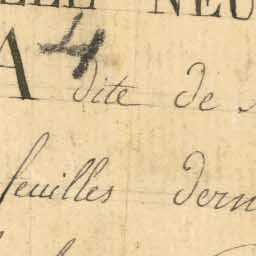 NEU
A 4 dite de
feuilles dern